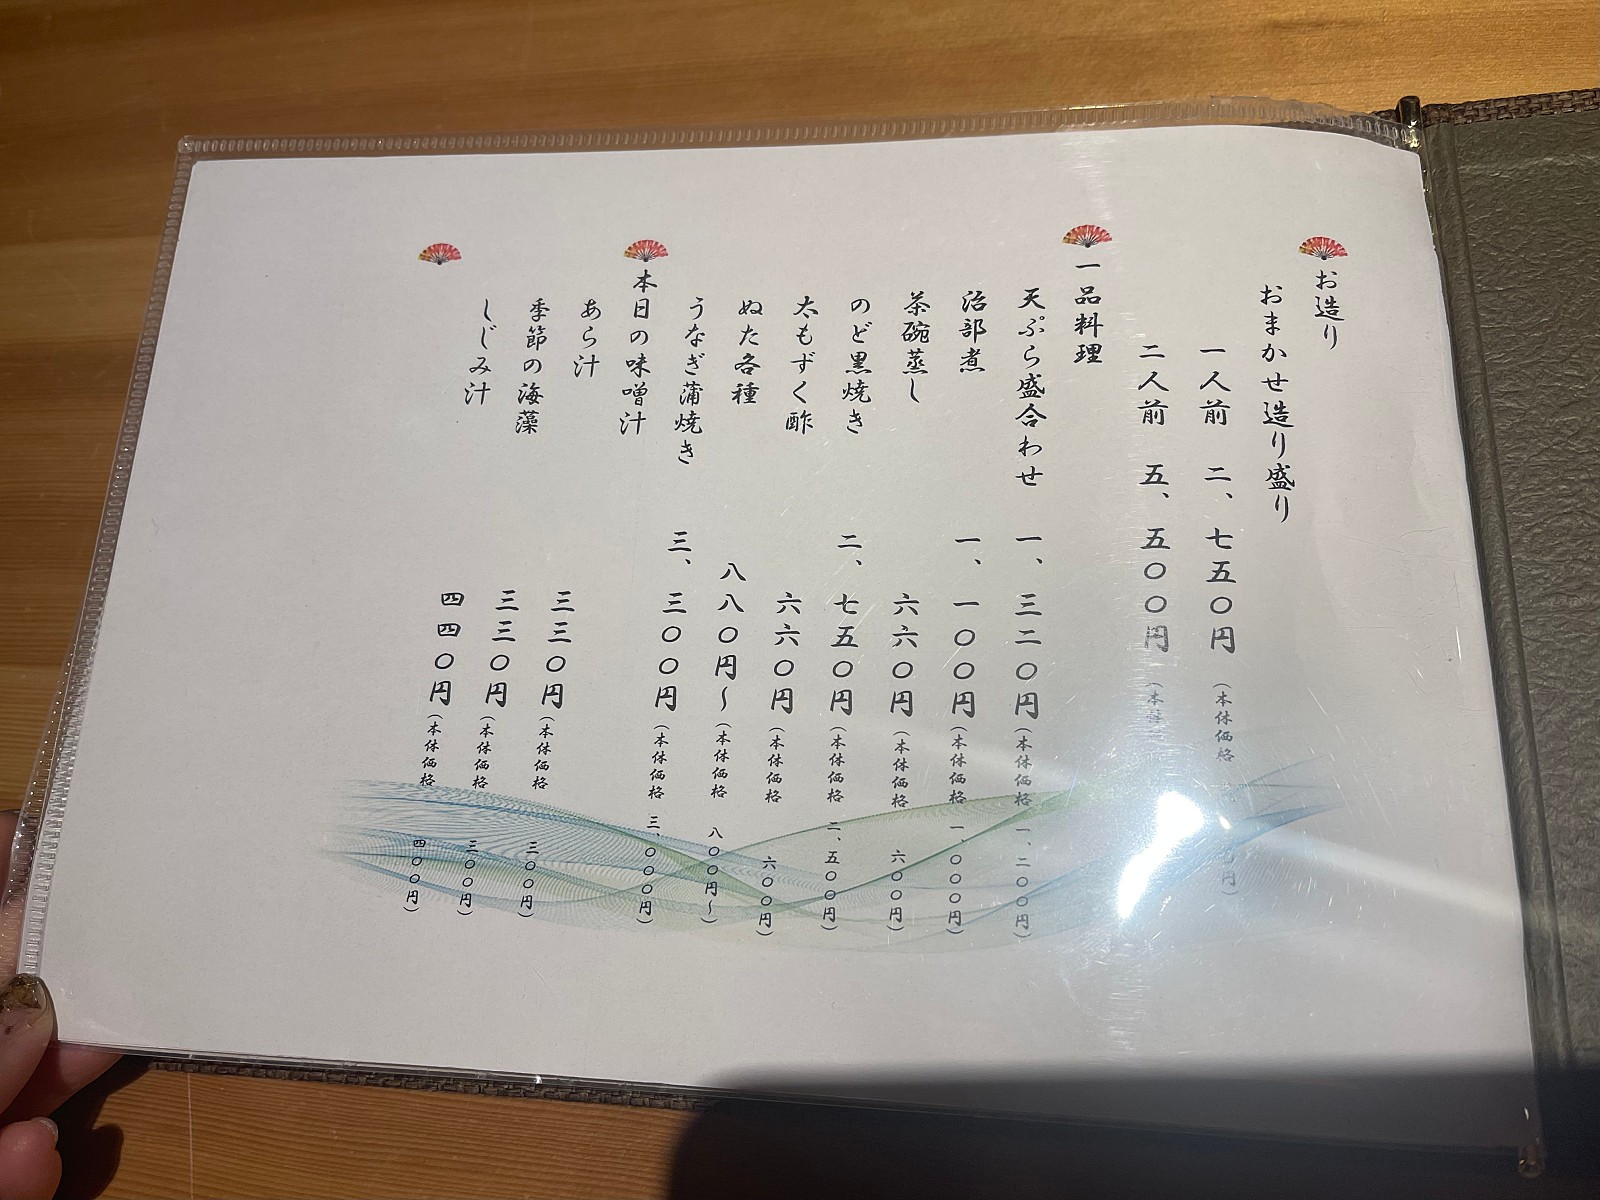 お造り
おまかせ造り盛り
一人前 二、七五〇円 (本体価格
二人前 五、五〇〇円 (本体
一品料理
天ぷら盛合わせ 一、三二〇円 (本体価格 一、二〇〇円)
治部煮 一、一〇〇円 (本体価格 一、〇〇〇円)
茶碗蒸し 六六〇円 (本体価格 六〇〇円)
のど黒焼き 二、七五〇円 (本体価格 二、五〇〇円)
太もずく酢 六六〇円 (本体価格 六〇〇円)
ぬた各種 八八〇円〜 (本体価格 八〇〇円〜)
うなぎ蒲焼き 三、三〇〇円 (本体価格 三、〇〇〇円)
本日の味噌汁
あら汁 三三〇円 (本体価格 三〇〇円)
季節の海藻 三三〇円 (本体価格 三〇〇円)
しじみ汁 四四〇円 (本体価格 四〇〇円)